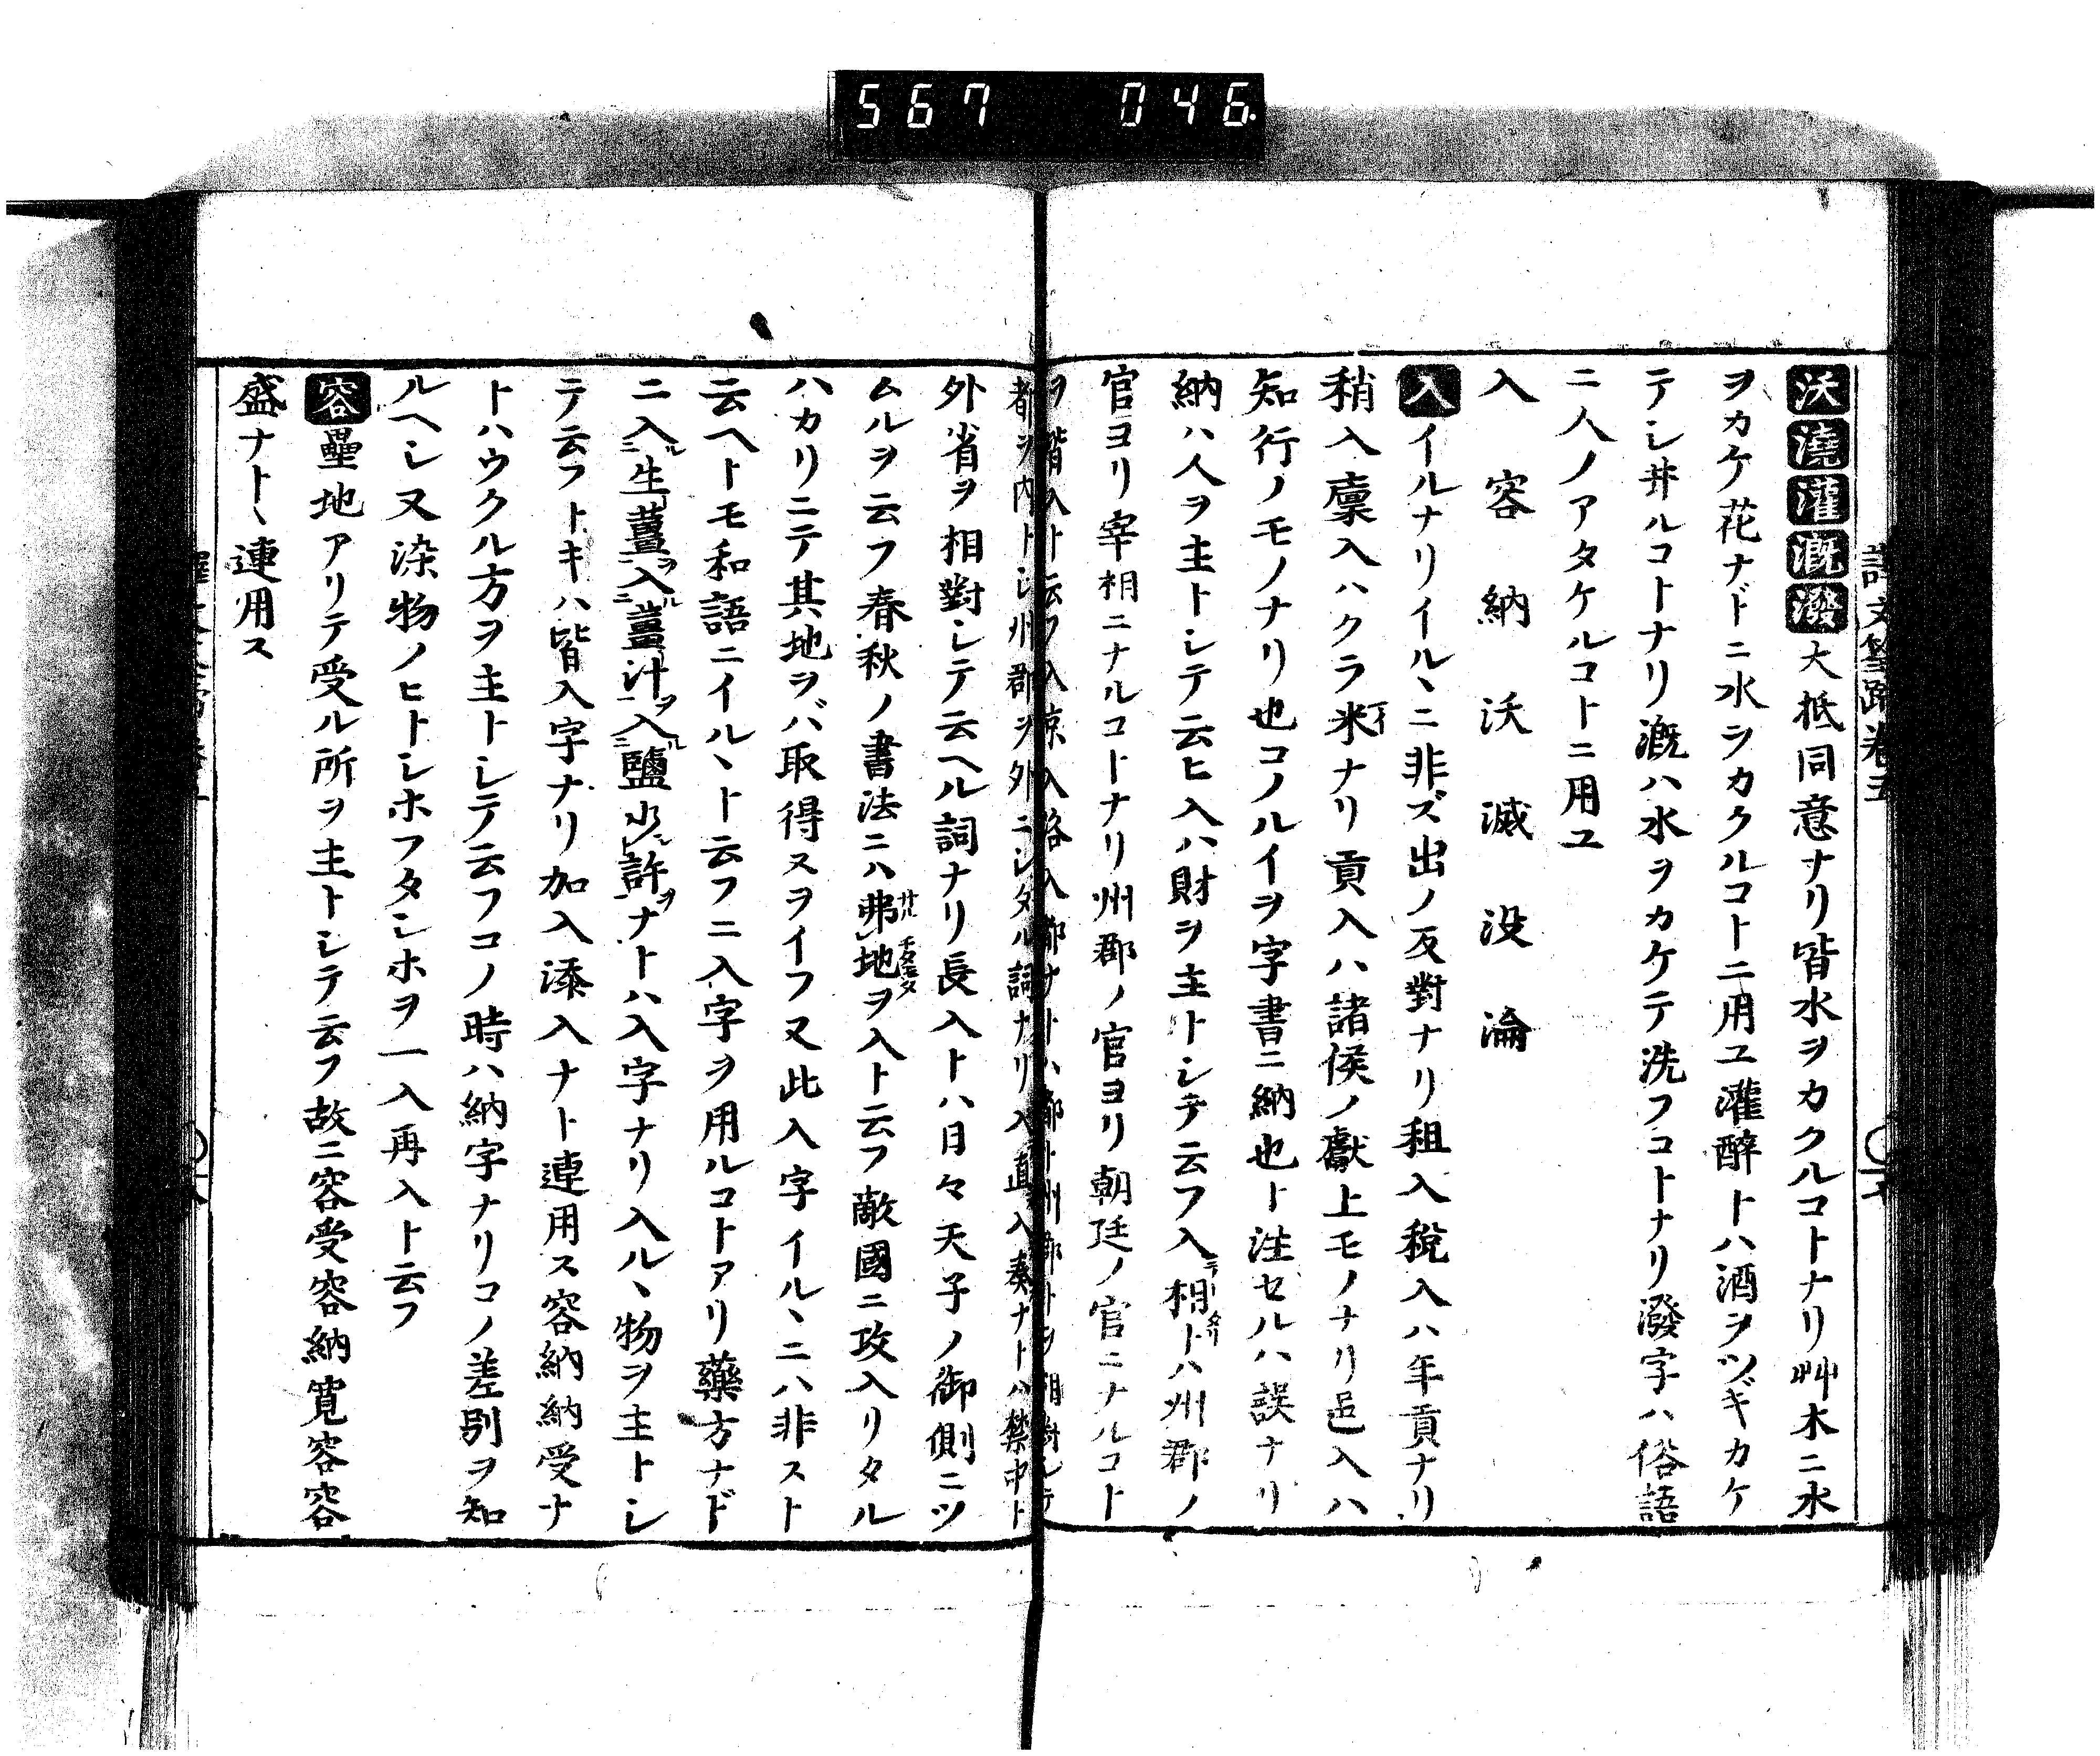 567 046
沃澆灌漑潑大抵同意ナリ皆水ヲカクルコトナリ艸木ニ水
ヲカケ花ナドニ水ヲカクルコトニ用ユ灌醉トハ酒ヲツギカケ
テシ井ルコトナリ漑ハ水ヲカケテ洗フコトナリ潑字ハ俗語
ニ人ノアタケルコトニ用ユ
入容納沃滅没淪
入イルナリイルヽニ非ズ出ノ反對ナリ租入税入ハ年貢ナリ
稍入稟入ハクラ米ナリ貢入ハ諸侯ノ獻上モノナリ邑入ハ
知行ノモノナリ也コノルイヲ字書ニ納也ト注セルハ誤ナリ
納ハ人ヲ主トシテ云ヒ入ハ財ヲ主トシテ云フ入相トハ州郡ノ
官ヨリ宰相ニナルコトナリ州郡ノ官ヨリ朝廷ノ官ニナルコト
ヲ皆入ト云フ入京入洛入都ナトハ都ト州郡トヲ相對シテ
都ヲ内トシ州郡ヲ外ニシタル詞ナリ入直入奏ナトハ禁中ト
外省ヲ相對シテ云ヘル詞ナリ長入トハ日々天子ノ御側ニツ
ムルヲ云フ春秋ノ書法ニハ弗地ヲ入ト云フ敵國ニ攻入リタル
ハカリニテ其地ヲバ取得スヲイフ又此入字イルヽニハ非スト
云ヘトモ和語ニイルヽト云フニ入字ヲ用ルコトアリ藥方ナド
ニ入生薑入薑汁入鹽少許ナトハ入字ナリ入ルヽ物ヲ主トシ
テ云フトキハ皆入字ナリ加入添入ナト連用ス容納納受ナ
トハウクル方ヲ主トシテ云フコノ時ハ納字ナリコノ差別ヲ知
ルヘシ又染物ノヒトシホフタシホヲ一入再入ト云フ
容壘地アリテ受ル所ヲ主トシテ云フ故ニ容受容納寛容容
盛ナトヽ連用ス